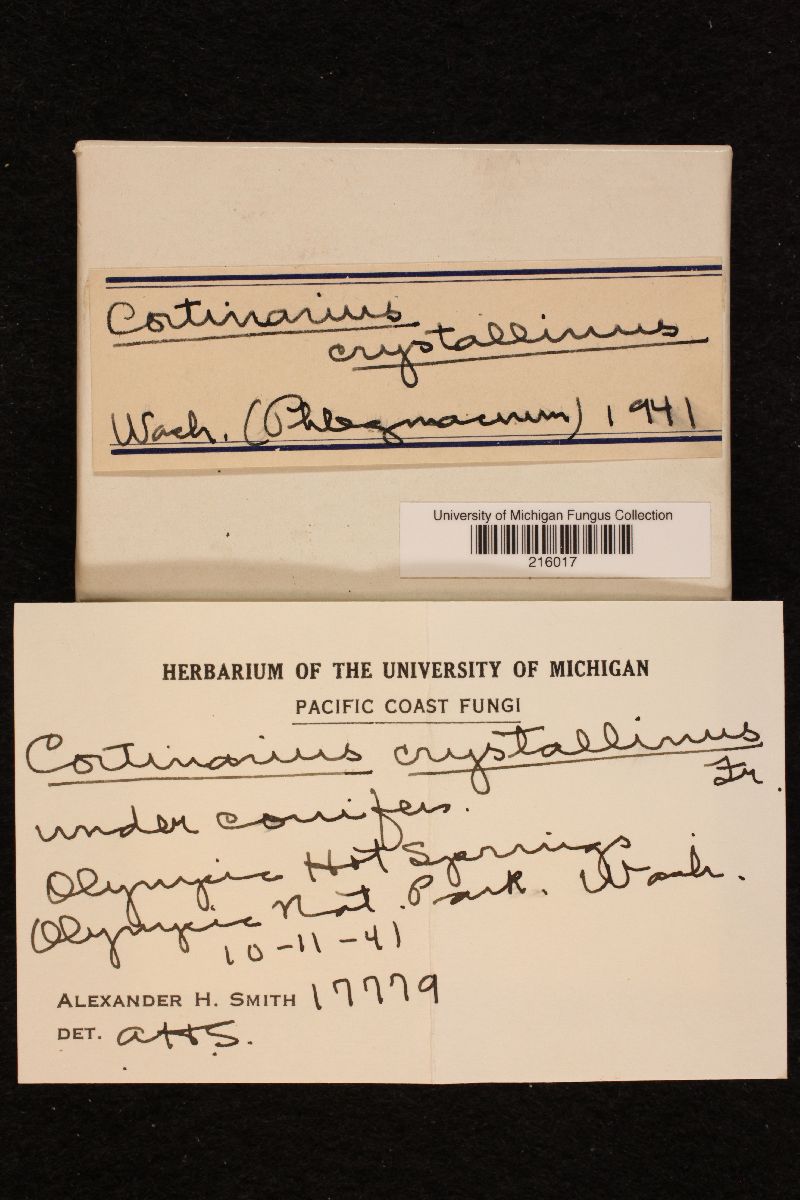 Cortinarius
crystallinus
Wash. (Phlegmacium) 1941
University of Michigan Fungus Collection
216017
HERBARIUM OF THE UNIVERSITY OF MICHIGAN
PACIFIC COAST FUNGI
Cortinarius crystallinus
Fr.
under conifers.
Olympic Hot Springs
Olympic Nat. Park. Wash.
10-11-41
ALEXANDER H. SMITH 17779
DET. AHS.